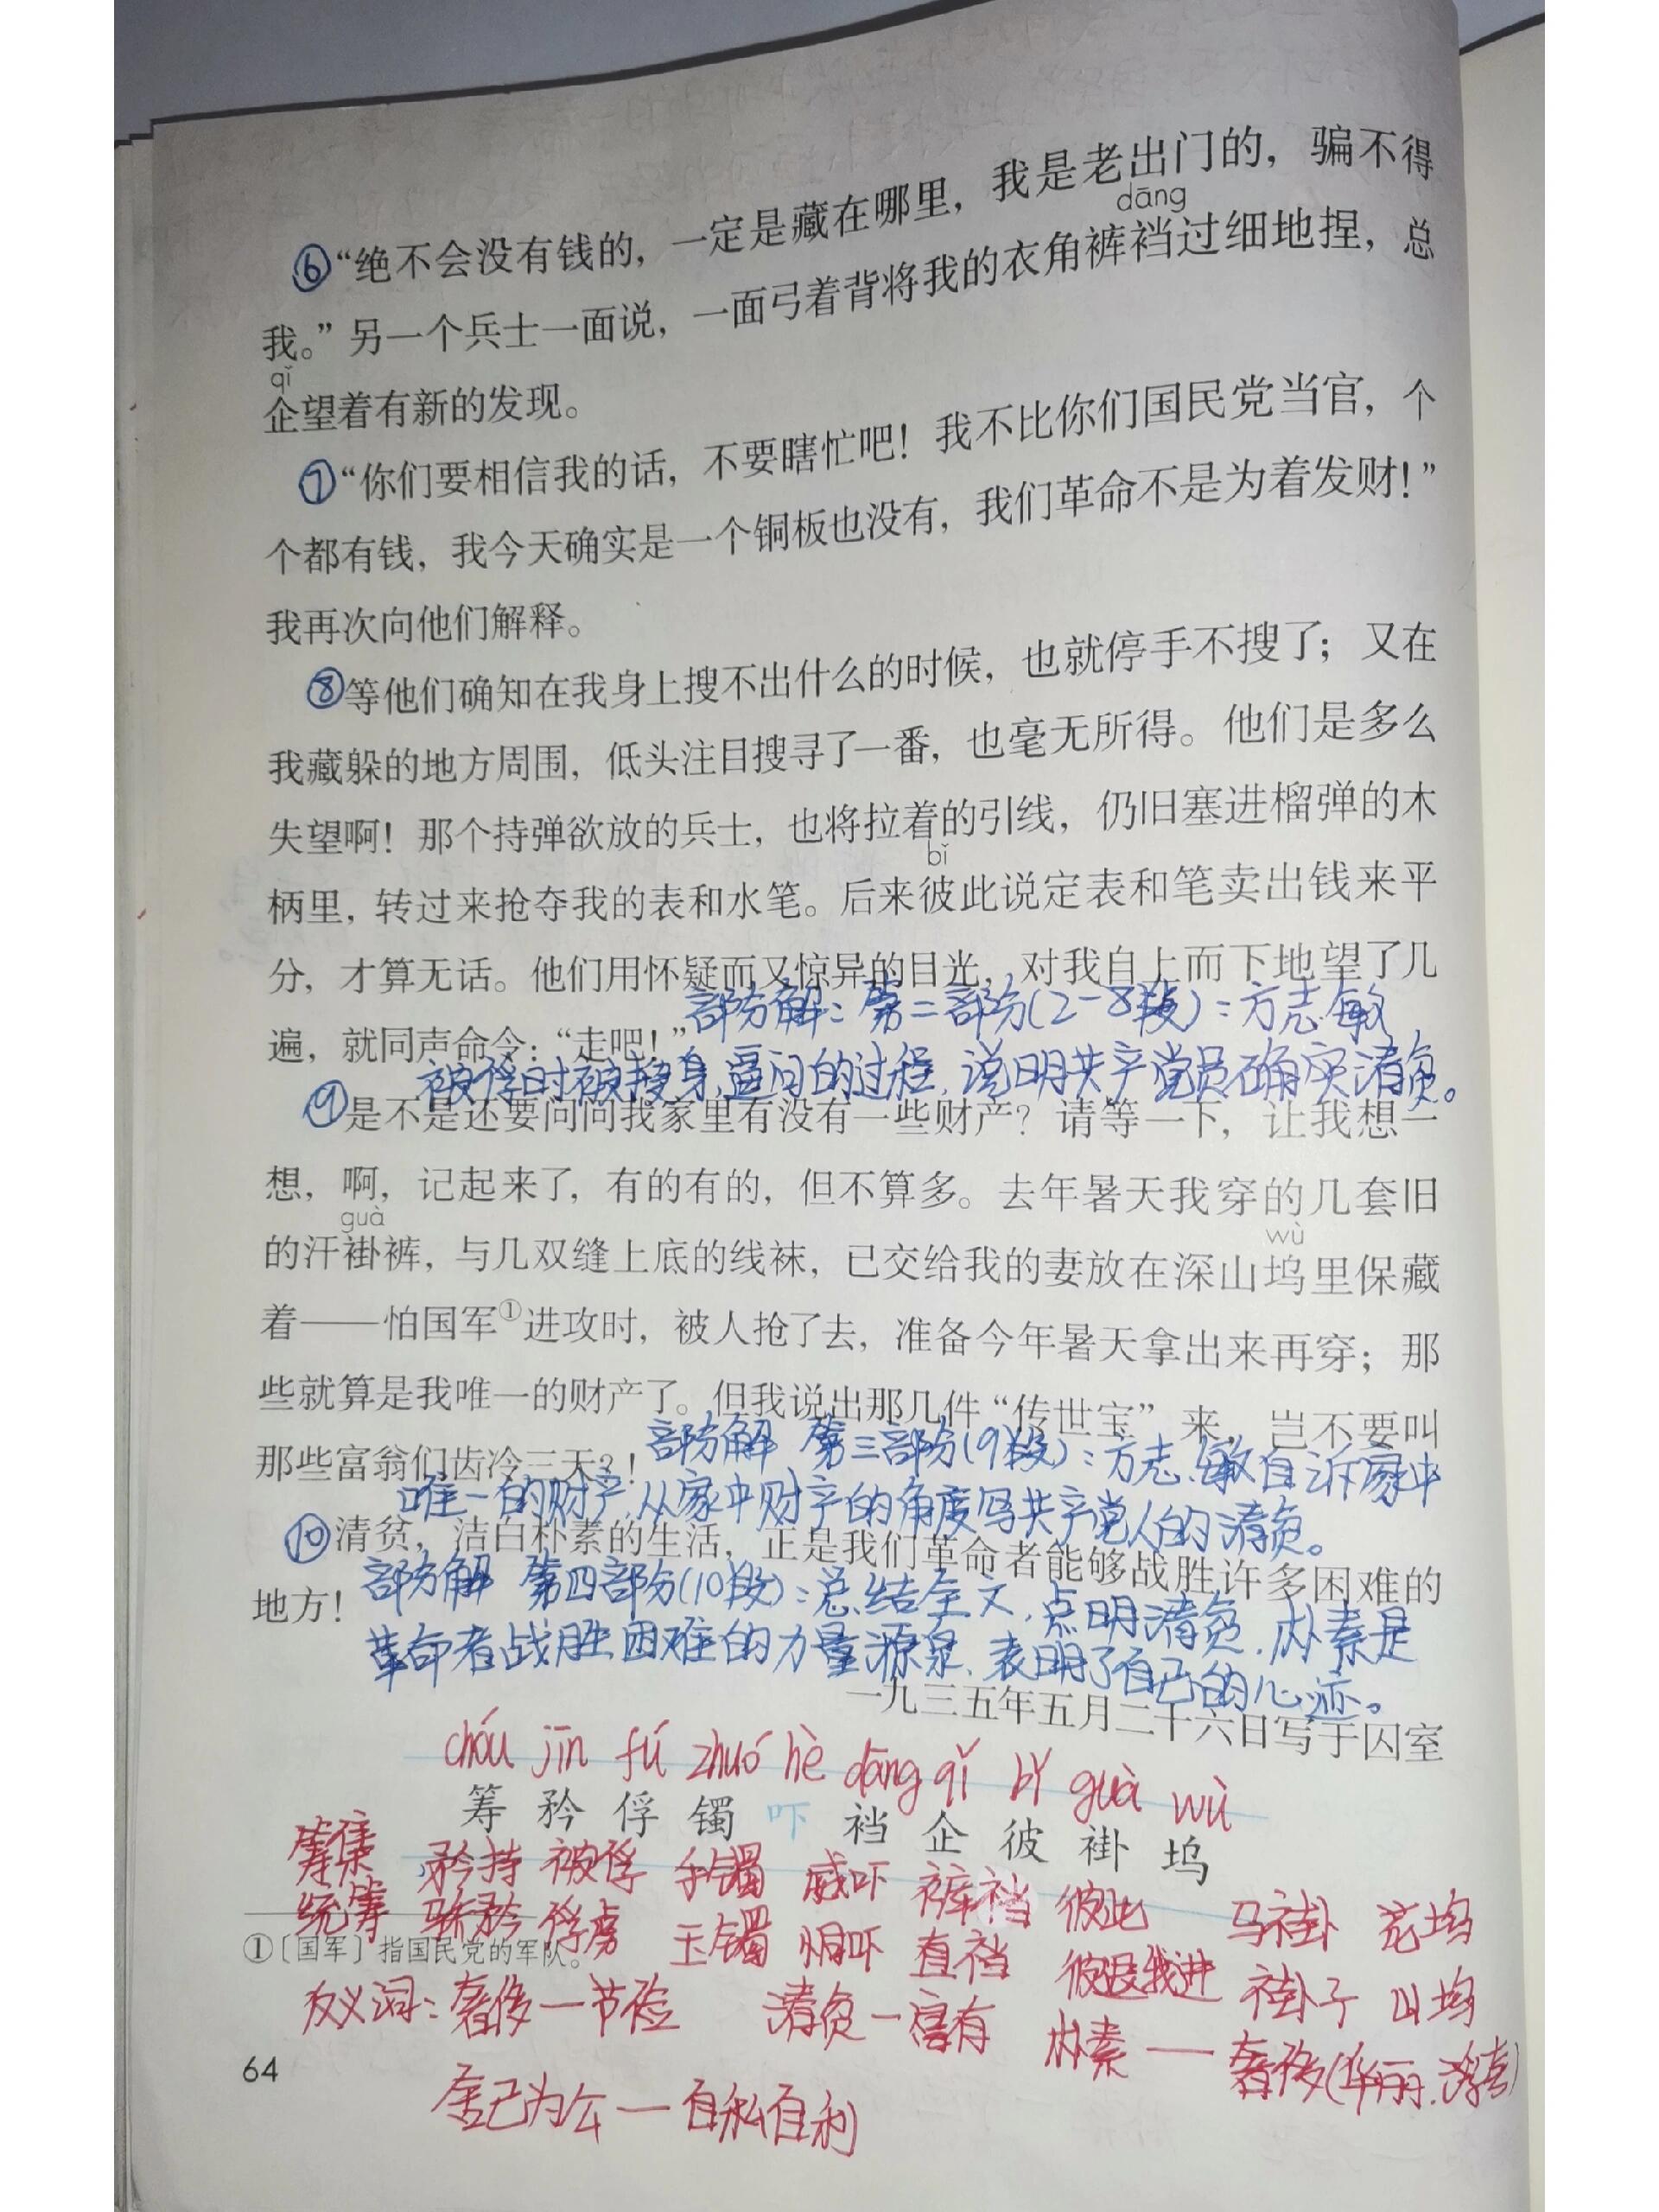 ⑥“绝不会没有钱的，一定是藏在哪里，我是老出门的，骗不得
dāng
我。”另一个兵士一面说，一面弓着背将我的衣角裤裆过细地捏，总
qǐ
企望着有新的发现。
⑦“你们要相信我的话，不要瞎忙吧！我不比你们国民党当官，个
个都有钱，我今天确实是一个铜板也没有，我们革命不是为着发财！”
我再次向他们解释。
⑧等他们确知在我身上搜不出什么的时候，也就停手不搜了；又在
我藏躲的地方周围，低头注目搜寻了一番，也毫无所得。他们是多么
失望啊！那个持弹欲放的兵士，也将拉着的引线，仍旧塞进榴弹的木
bǐ
柄里，转过来抢夺我的表和水笔。后来彼此说定表和笔卖出钱来平
分，才算无话。他们用怀疑而又惊异的目光，对我自上而下地望了几
部分解：第二部份(2-8段)：方志敏
遍，就同声命令：“走吧！”
被俘时被搜身、逼问的过程，说明共产党员确实清贫。
⑨是不是还要问问我家里有没有一些财产？请等一下，让我想一
想，啊，记起来了，有的有的，但不算多。去年暑天我穿的几套旧
guà wù
的汗褂裤，与几双缝上底的线袜，已交给我的妻放在深山坞里保藏
着——怕国军①进攻时，被人抢了去，准备今年暑天拿出来再穿；那
些就算是我唯一的财产了。但我说出那几件“传世宝”来，岂不要叫
部分解 第三部份(9段)：方志敏自诉家中
那些富翁们齿冷三天？！
唯一的财产，从家中财产的角度写共产党人的清贫。
⑩清贫，洁白朴素的生活，正是我们革命者能够战胜许多困难的
部分解 第四部份(10段)：总结全文，点明清贫、朴素是
地方！
革命者战胜困难的力量源泉、表明了自己的心迹。
一九三五年五月二十六日写于囚室
chóu jīn fú zhuó hè dāng qǐ bǐ guà wù
筹 矜 俘 镯 吓 裆 企 彼 褂 坞
筹集 矜持 被俘 手镯 威吓 裤裆 彼此 马褂 花坞
统筹 骄矜 俘虏 玉镯 恫吓 直裆 彼退我进 褂子 山坞
①〔国军〕指国民党的军队。
反义词：奢侈—节俭 清贫—富有 朴素——奢侈(华丽、)
64
舍己为公—自私自利